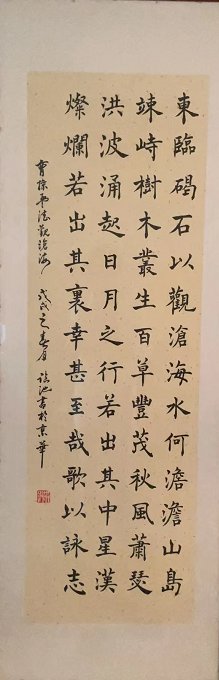 東臨碣石以觀滄海水何澹澹山島
竦峙樹木叢生百草豐茂秋風蕭瑟
洪波涌起日月之行若出其中星漢
燦爛若出其裏幸甚至哉歌以詠志
曹操觀滄海 戊戌之春月 書於京華